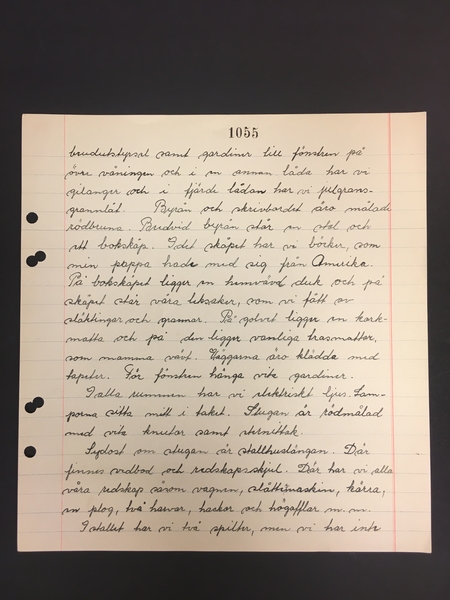 1055
samt gardiner till fönstren på
övre våningen och i en annan låda har vi
och i fjärde lådan har vi julgrans-
grannlåt. Byrån och skrivbordet äro målade
rödbruna. Bredvid byrån står en stol och
ett bokskåp. I det skåpet har vi böcker, som
min pappa hade med sig från Amerika.
På bokskåpet ligger en hemvävd duk och på
skåpet står våra leksaker, som vi fått av
släktingar och grannar. På golvet ligger en kork-
matta och på den ligger vanliga trasmattor,
som mamma vävt. Väggarna äro klädda med
tapeter. För fönstren hänga vita gardiner.
I alla rummen har vi elektriskt ljus. Lam-
porna sitta mitt i taket. Stugan är rödmålad
med vita knutar samt
Sydost om stugan är stallhuslängan. Där
finnes vedbod och redskapsskjul. Där har vi alla
våra redskap såsom vagnen, slåttermaskin, kärra,
en plog, två harvar, hackor och högafflar m. m.
I stallet har vi två spiltor, men vi har inte